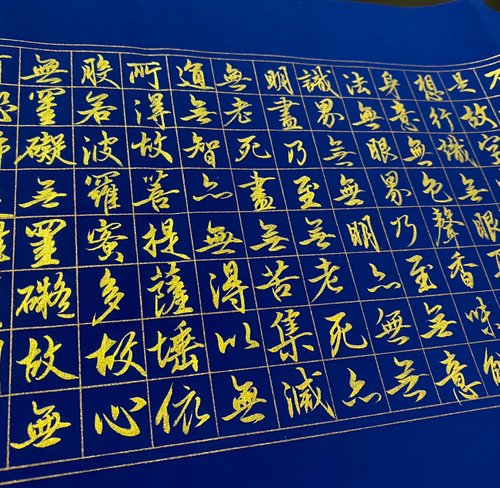 是故空
想行識無眼
身意無色聲香味觸
法無眼界乃至無意
識界無無明亦無無
明盡乃至無老死亦
無老死盡無苦集滅
道無智亦無得以無
所得故菩提薩埵依
般若波羅蜜多故心
無罣礙無罣礙故無